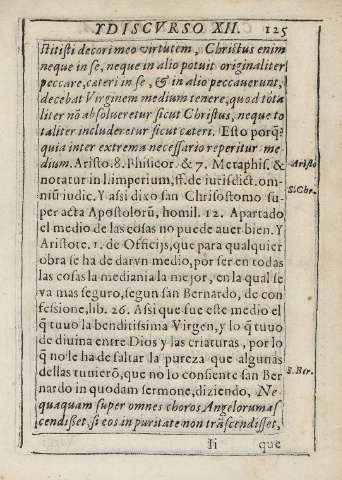 YDISCVRSO XII. 125
stitisti decori meo virtutem, Christus enim
neque in se, neque in alio potuit originaliter
peccare, cæteri in se, & in alio peccauerunt,
decebat Virginem medium tenere, quod tota
liter nõ absolueretur sicut Christus, neque to
taliter includeretur sicut cæteri. Esto porq̃?
quia inter extrema necessario reperitur me
dium. Aristo. 8. Phisicor. & 7. Metaphis. &
Aristo
notatur in l. imperium, ff. de iurisdict. om-
niũ iudic. Y assi dixo san Chrisostomo su
S. Chr.
per acta Apostolorũ, homil. 12. Apartado
el medio de las cosas no puede auer bien. Y
Aristote. 1. de Officijs, que para qualquier
obra se ha de dar vn medio, por ser en todas
las cosas la mediania la mejor, en la qual se
va mas seguro, segun san Bernardo, de con
fessione, lib. 26. Assi que fue este medio el
q̃ tuuo la benditissima Virgen, y lo q̃ tuuo
de diuina entre Dios y las criaturas, por lo
q̃ no se ha de faltar la pureza que algunas
dellas tuuierõ, que no lo consiente san Ber
S. Ber.
nardo in quodam sermone, diziendo, Ne
quaquam super omnes choros Angelorum as
cendisset, si eos in puritate non trãscendisset,
Ii que